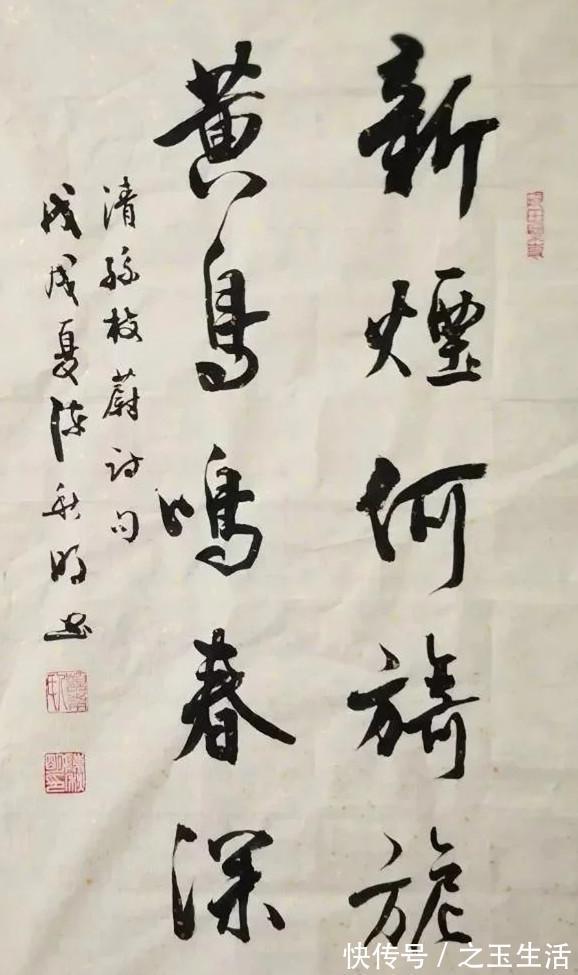 新煙何旖旎
黄鸟鳴春深
清孫枝蔚詩句
戊戌夏陈秋明书
快传号/之玉生活